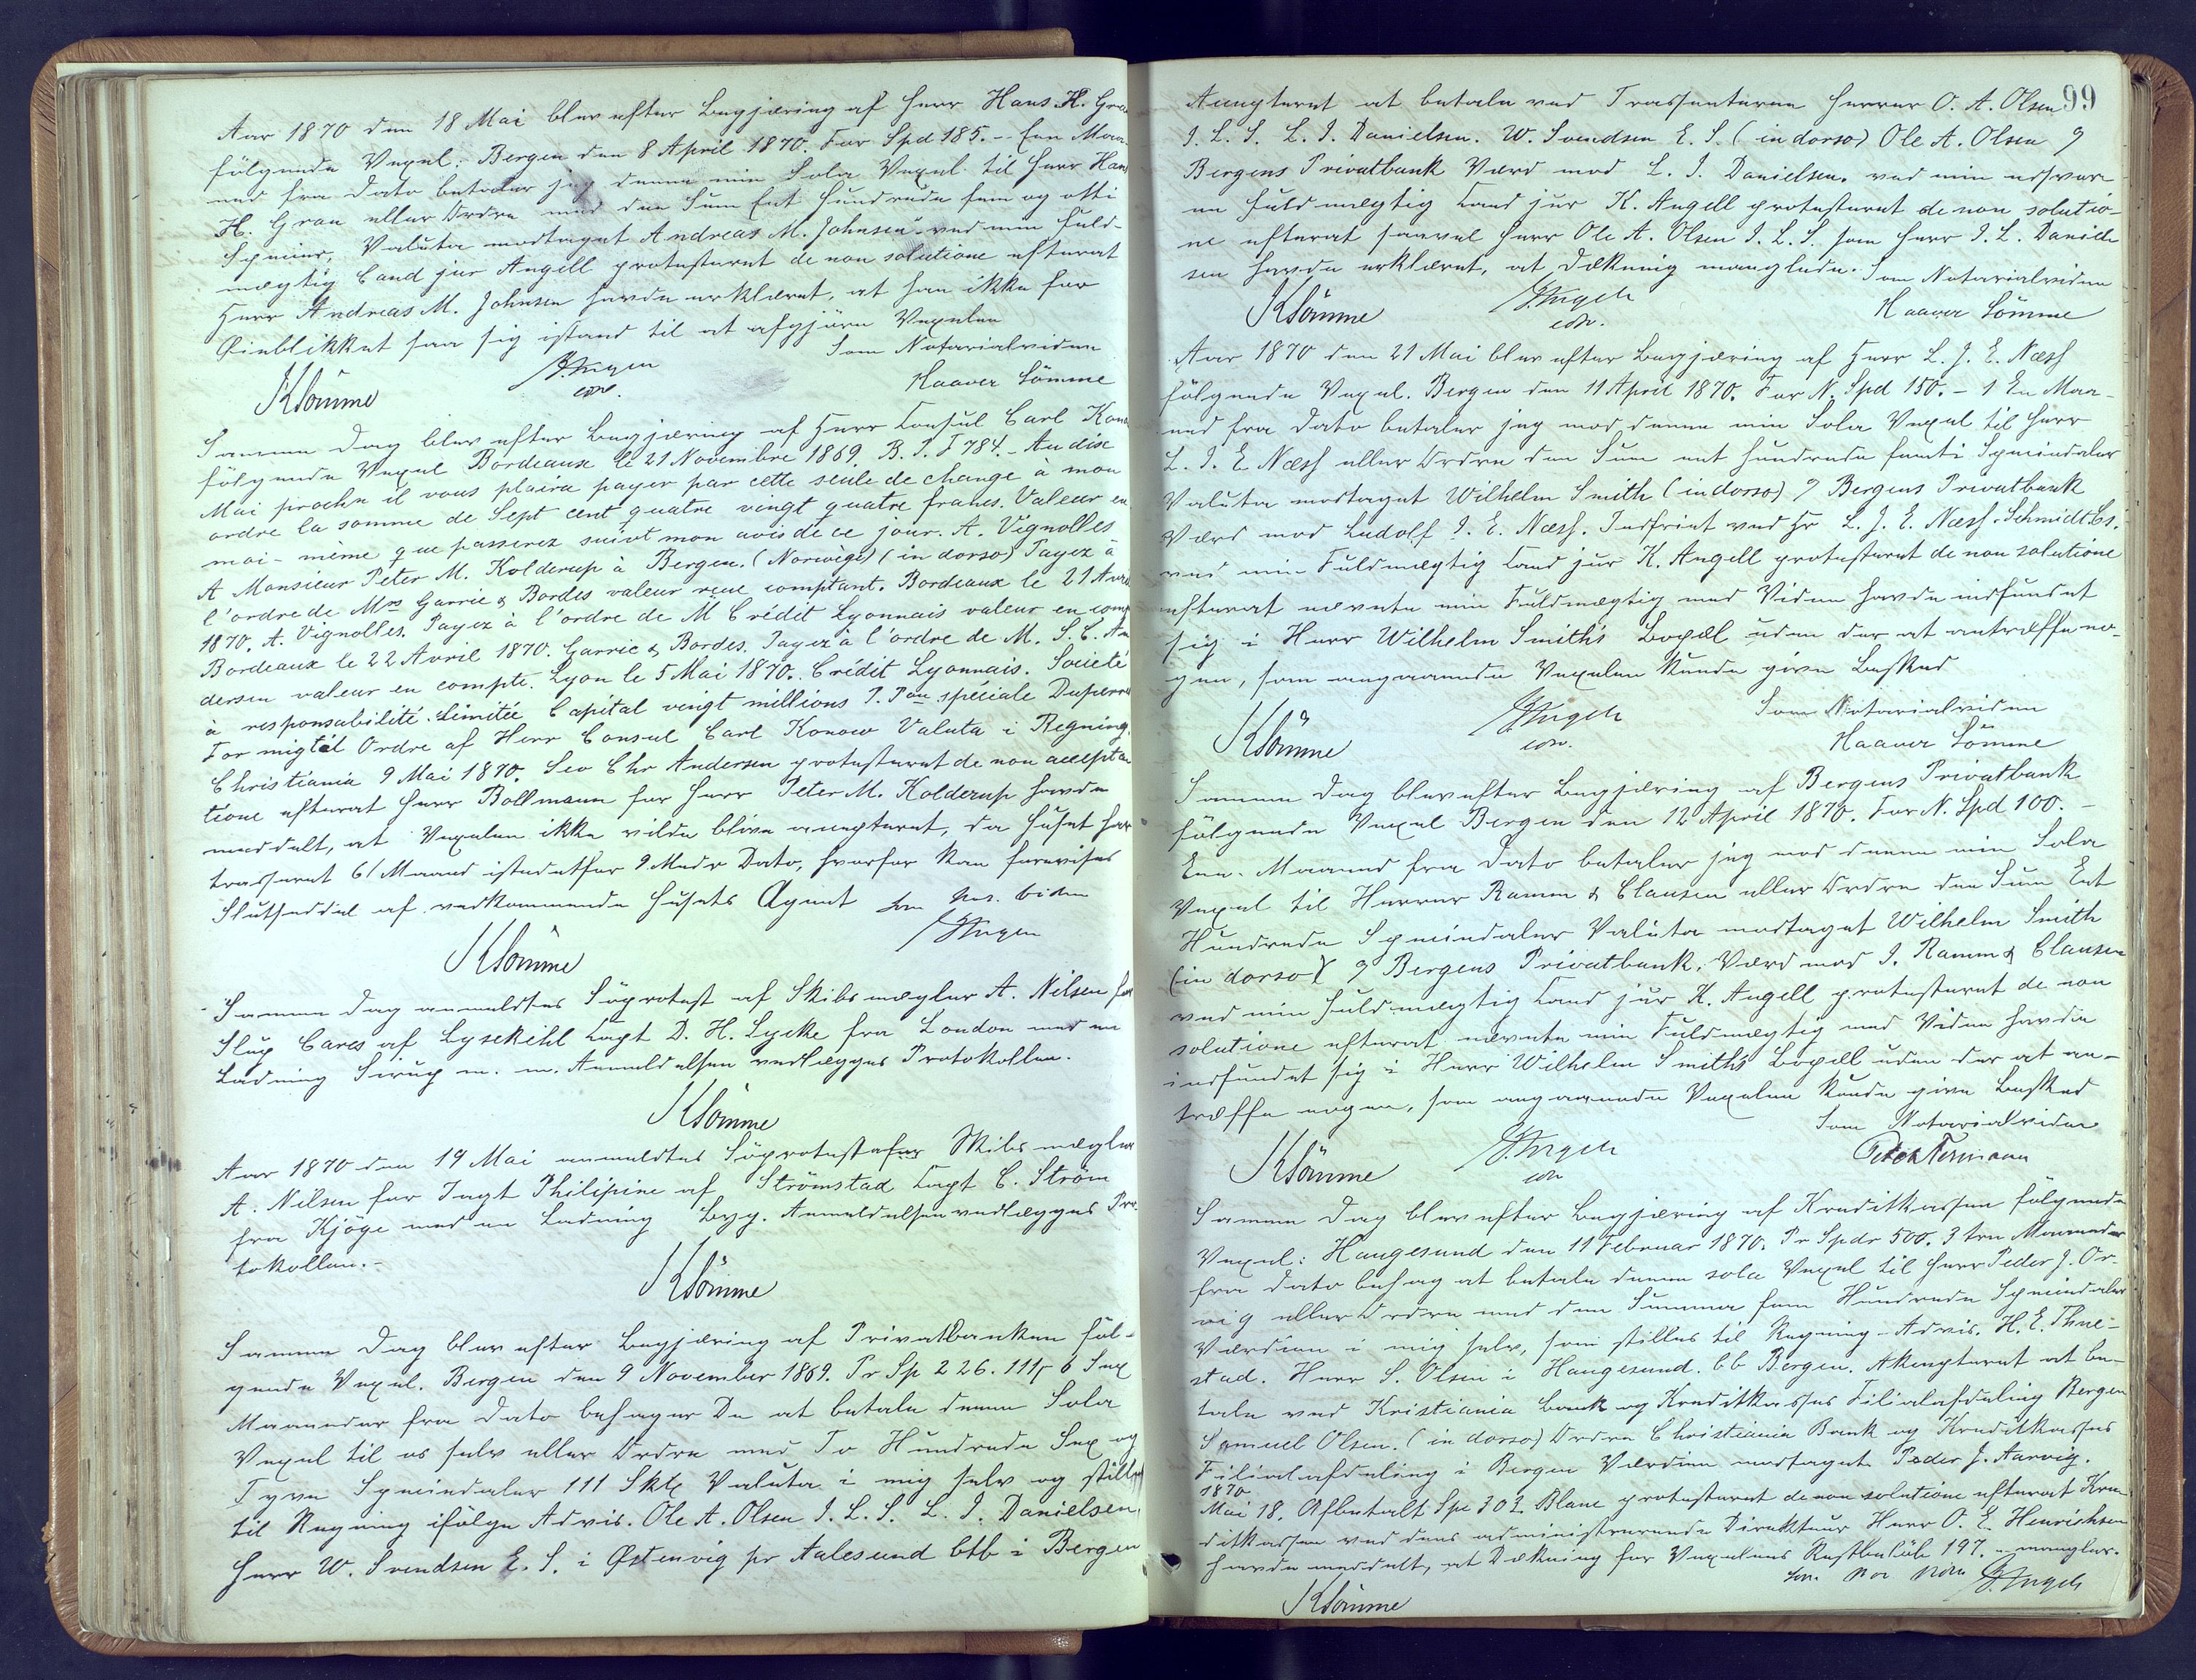 Aar 1870 den 18 Mai blev efter Begjæring af Herr Hans H. Gran
følgende Vexel: Bergen den 8 April 1870. For Spd 185. – Een Maa-
ned fra Dato betaler jeg denne min Sola Vexel til Herr Hans
H. Gran eller Ordre med den Sum Eet Hundrede fem og otti
Species, Valuta modtaget Andreas M. Johnsen. ved min Fuld-
mægtig Cand jur Angell protesteret de non solutione efterat
Herr Andreas M. Johnsen havde erklæret, at han ikke for
Øieblikket saa sig istand til at afgjøre Vexelen
Som Notarialvidne
KSömme
Haaver Sömme
Samme Dag blev efter Begjæring af Herr Consul Carl Kono
følgende Vexel Bordeaux le 21 Novembre 1869. B. P. F 784. – Au dix
Mai prochn il vous plaira payer par cette seule de change a mon
ordre la somme de Sept cent quatre vingt quatre francs. Valeur en
moi-même que passerez suivt mon avis de ce jour. A. Vignolles
A Monsieur Peter M. Kolderup à Bergen. (Norwège) (in dorso) Payez à
l'ordre de Mrs Garric & Bordes valeur reçue comptant. Bordeaux le 21 Avril
1870. A. Vignolles. Payez à l'ordre de M Crédit Lyonnais valeur en comp
Bordeaux le 22 Avril 1870. Garric & Bordes. Payez à l'ordre de M. S. C. An
dersen valeur en compte. Lyon le 5 Mai 1870. Crédit Lyonnais. Societé
à responsabilité. Limitée Capital vingt millions P. Pon spéciale
For mig til Ordre af Herr Consul Carl Konow Valuta i Regning.
Christiania 9 Mai 1870. Sev Chr Andersen protesteret de non accepta
tione efterat Herr Bollmann for Herr Peter M. Kolderup havde
meddelt, at Vexelen ikke vilde blive accepteret, da Huset har
trasseret 6 Maaned istedetfor 9 Mndr Dato, hvorfor kan forevises
Slutseddel af vedkommende Husets Agent som Not. vidne
KSömme
Samme Dag anmeldtes Søprotest af Skibsmægler A. Nilsen for
Slup Cares af Lysekihl Capt D. H. Lycke fra London med en
Ladning Sirup m. m. Anmeldelsen vedlægges Protokollen.
KSömme
Aar 1870 den 19 Mai anmeldtes Søprotest af Skibsmægler
A. Nilsen for Jagt Philipine af Strömstad Capt C. Ström
fra Kjöge med en Ladning Byg. Anmeldelsen vedlægges Pro-
tokollen. –
KSömme
Samme Dag blev efter Begjæring af Privatbanken føl-
gende Vexel. Bergen den 9 November 1869. Pr Sp 226. 111 6 Sex
Maaneder fra Dato behager De at betale denne Sola
Vexel til os selv eller Ordre med To Hundrede Sex og
Tyve Speciedaler 111 Sk Valuta i mig selv og stilles
til Regning ifølge Advis. Ole A. Olsen J. L. S. L. J. Danielsen,
Herr W. Svendsen E. S. i Østenvig pr Aalesund btb i Bergen
99
Accepteret at betale ved Trassenterne Herrer O. A. Olsen
J. L. S. L. J. Danielsen. W. Svendsen E. S. (in dorso) Ole A. Olsen
Bergens Privatbank Værd mod L. J. Danielsen. ved min edsvor-
ne Fuldmægtig Cand jur K. Angell protesteret de non solutio-
ne efterat saavel Herr Ole A. Olsen J. L. S. som Herr J. L. Daniel-
sen havde erklæret, at Dækning manglede. Som Notarialvidne
KSömme
Haaver Sömme
Aar 1870 den 21 Mai blev efter Begjæring af Herr L. J. E. Næss
følgende Vexel. Bergen den 11 April 1870. For N. Spd 150. – 1 En Maa-
ned fra Dato betaler jeg mod denne min Sola Vexel til Herr
L. J. E. Næss eller Ordre den Sum eet Hundrede femti Speciedaler
Valuta modtaget Wilhelm Smith (in dorso) Bergens Privatbank
Værd mod Ludolf J. E. Næss. Indfriet ved Hr L. J. E. Næss. Schmidt Cs.
ved min Fuldmægtig Cand jur K. Angell protesteret de non solutione
efterat nævnte min Fuldmægtig med Vidne havde indfundet
sig i Herr Wilhelm Smiths Bopæl uden der at antræffe no-
gen, som angaaende Vexelen kunde give Besked
Som Notarialvidne
KSömme
Haaver Sömme
Samme Dag blev efter Begjæring af Bergens Privatbank
følgende Vexel Bergen den 12 April 1870. For N. Spd 100. –
Een Maaned fra Dato betaler jeg mod denne min Sola
Vexel til Herrer Ramm & Clausen eller Ordre den Sum Eet
Hundrede Speciedaler Valuta modtaget Wilhelm Smith
(in dorso) Bergens Privatbank. Værd mod J. Ramm & Clausen
ved min Fuldmægtig Cand jur K. Angell protesteret de non
solutione efterat nævnte min Fuldmægtig med Vidne havde
indfundet sig i Herr Wilhelm Smiths Bopæl uden der at an-
træffe nogen, som angaaende Vexelen kunde give Besked
Som Notarialvidne
KSömme
Samme Dag blev efter Begjæring af Kreditkassen følgende
Vexel: Haugesund den 11 Februar 1870. Pr Spdr 500. 3 tre Maaneder
fra Dato behag at betale denne sola Vexel til Herr Peder J. Or-
vig eller Ordre med den Summa fem Hundrede Speciedaler
Værdien i mig selv, som stilles til Regning Advis. H. E. Thue-
stad. Herr S. Olsen i Haugesund. bb Bergen. Akcepteret at be-
tale ved Kristiania Bank og Kreditkasses Filialafdeling Bergen
Samuel Olsen. (in dorso) Ordre Christiania Bank og Kreditkasses
Filialafdeling i Bergen Værdien modtaget Peder J. Aarvig.
1870
Mai 18. Afbetalt Spe 303. Blanc protesteret de non solutione efterat Kre-
ditkassen ved dens administrerende Direkteur Herr O. E. Henrichsen
havde meddelt, at Dækning for Vexelens Restbeløb 197. – mangler.
KSömme